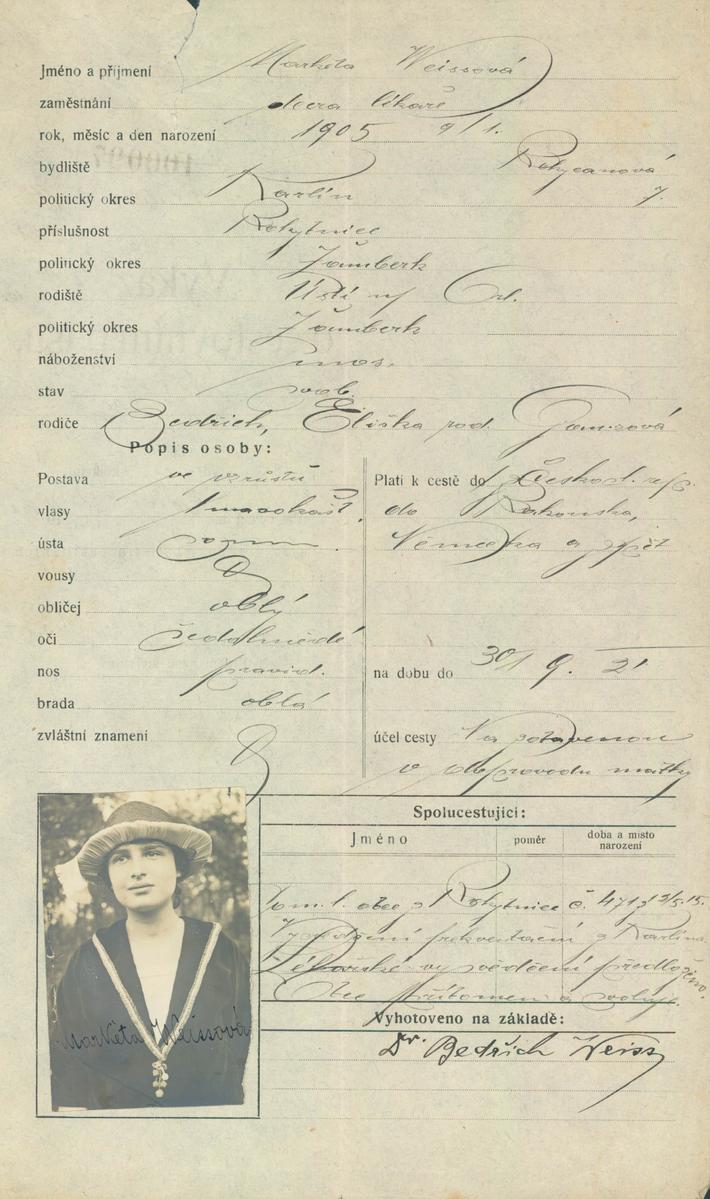 Jméno a příjmení Markéta Weissová
zaměstnání dcera lékaře
rok, měsíc a den narození 1905 9/1.
bydliště Rokycanová
politický okres Karlín 7.
příslušnost Rokytnice
politický okres Žamberk
rodiště Ústí n/ Orl.
politický okres Žamberk
náboženství mos.
stav svob.
rodiče Bedřich, Eliška roz.
Popis osoby:
Postava ve vzrůstu
vlasy tmavokašt.
ústa
vousy
obličej oblý
oči šedohnědé
nos pravid.
brada oblá
zvláštní znamení
Platí k cestě do Českosl. rep.
do Rakouska,
Německa a zpět
na dobu do 30/ 9. 21
účel cesty Na zotavenou
v doprovodu matky
Spolucestující:
Jméno poměr doba a místo narození
Dom. l. obce Rokytnice č. 471
z Karlína
Lékařské vysvědčení předloženo.
Otec přítomen a svoluje.
Vyhotoveno na základě:
Dr. Bedřich Weiss
Markéta Weissová